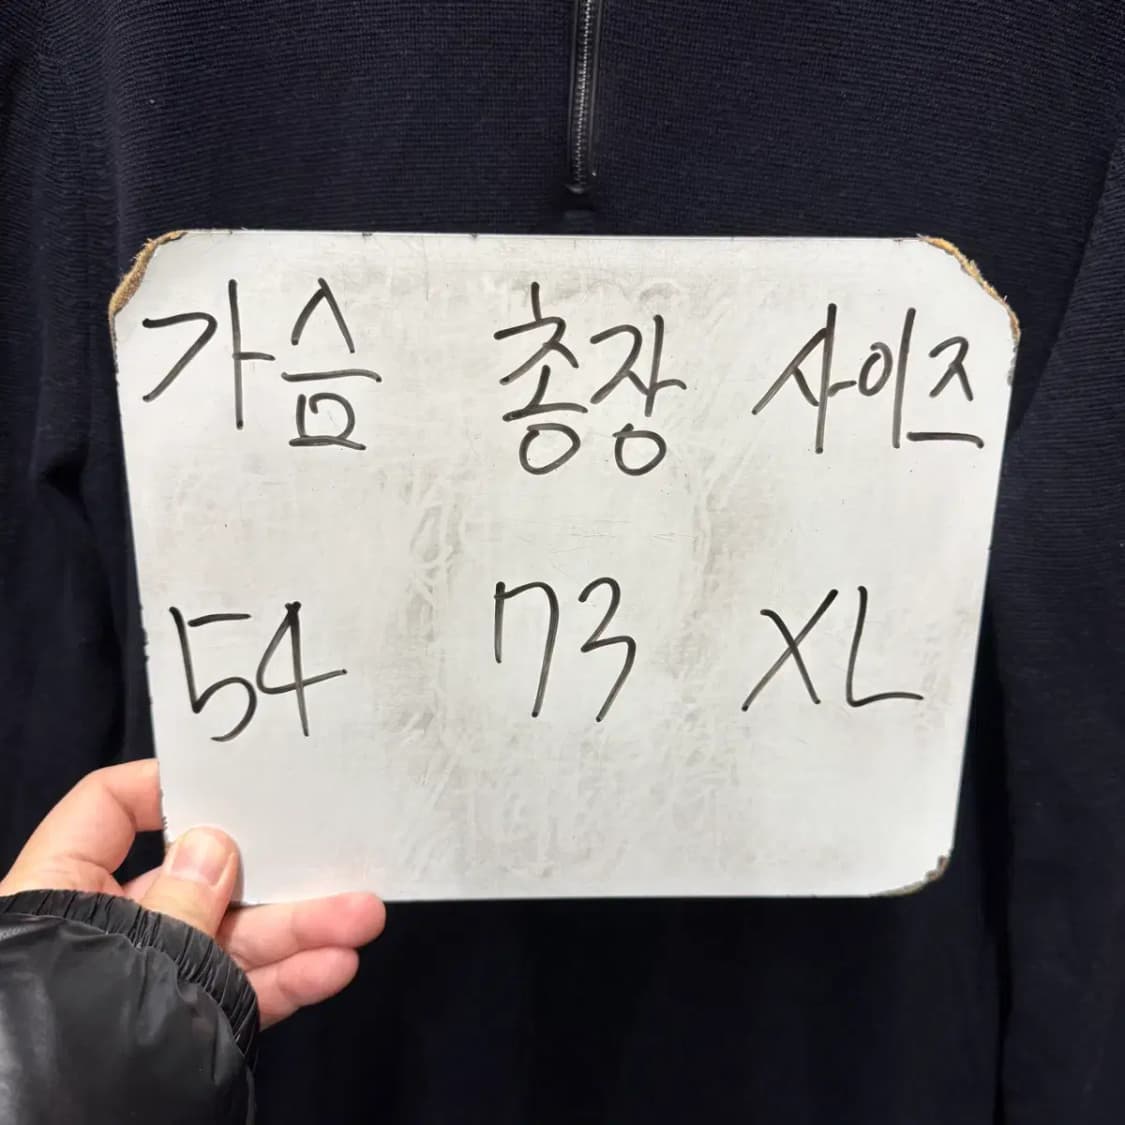 가슴 총장 사이즈
54 73 XL